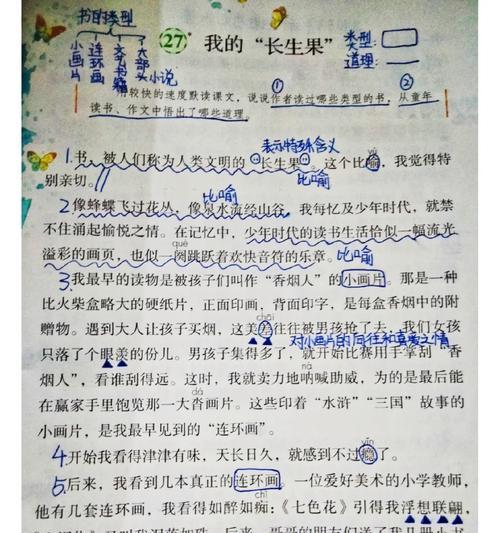 书的类型
小画片
连环画
文艺书籍
大部头
小说
27* 我的“长生果”
类型：
道理：
① ②
用较快的速度默读课文，说说作者读过哪些类型的书，从童年
读书、作文中悟出了哪些道理。
表示特殊含义
1.书，被人们称为人类文明的“长生果”。这个比喻，我觉得特
yù
别亲切。
比喻
比喻
2像蜂蝶飞过花丛，像泉水流经山谷，我每忆及少年时代，就禁
不住涌起愉悦之情。在记忆中，少年时代的读书生活恰似一幅流光
què
比喻
溢彩的画页，也似一阕跳跃着欢快音符的乐章。
3我最早的读物是被孩子们叫作“香烟人”的小画片。那是一种
比火柴盒略大的硬纸片，正面印画，背面印字，是每盒香烟中的附
chāi
赠物。遇到大人让孩子买烟，这美差往往被男孩抢了去，我们女孩
对小画片的向往和喜爱之情
只落了个眼羡的份儿。男孩子集得多了，就开始比赛用手掌刮“香
nà
烟人”，看谁刮得远。这时，我就卖力地呐喊助威，为的是最后能
dá
在赢家手里饱览那一大沓画片。这些印着“水浒”“三国”故事的
小画片，是我最早见到的“连环画”。
yǐn
4.开始我看得津津有味，天长日久，就感到不过瘾了。
5.后来，我看到几本真正的连环画。一位爱好美术的小学教师，
chī
他有几套连环画，我看得如醉如痴：《七色花》引得我浮想联翩，